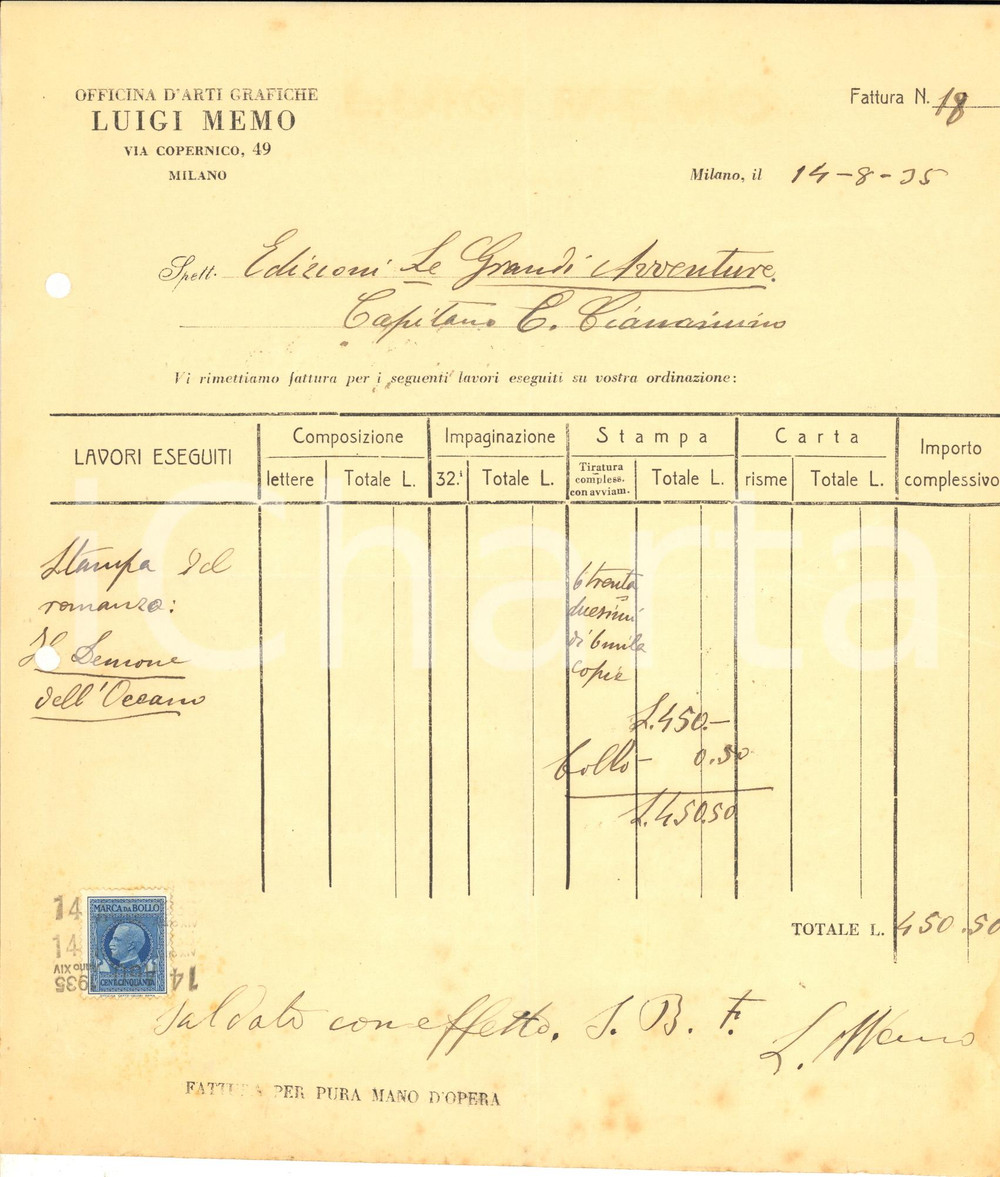 OFFICINA D'ARTI GRAFICHE
LUIGI MEMO
VIA COPERNICO, 49
MILANO
Fattura N. 18
Milano, il 14-8-35
Spett. Edizioni Le Grandi Avventure.
Capitano C. Ciancimino
Vi rimettiamo fattura per i seguenti lavori eseguiti su vostra ordinazione:
LAVORI ESEGUITI
Composizione
lettere
Totale L.
Impaginazione
32.i
Totale L.
Stampa
Tiratura
compless.
con avviam.
Totale L.
Carta
risme
Totale L.
Importo
complessivo
Stampa del
romanzo:
Il Demone
dell'Oceano
6 trenta
duesimi
di 6 mila
copie
L. 450.-
bollo - 0.50
L. 450.50
TOTALE L. 450.50
14
14
MARCA DA BOLLO
CENT. CINQUANTA
Anno XIV
14
1935
Saldato con effetto. S. B. F.
L. Memo
FATTURA PER PURA MANO D'OPERA
iCharta